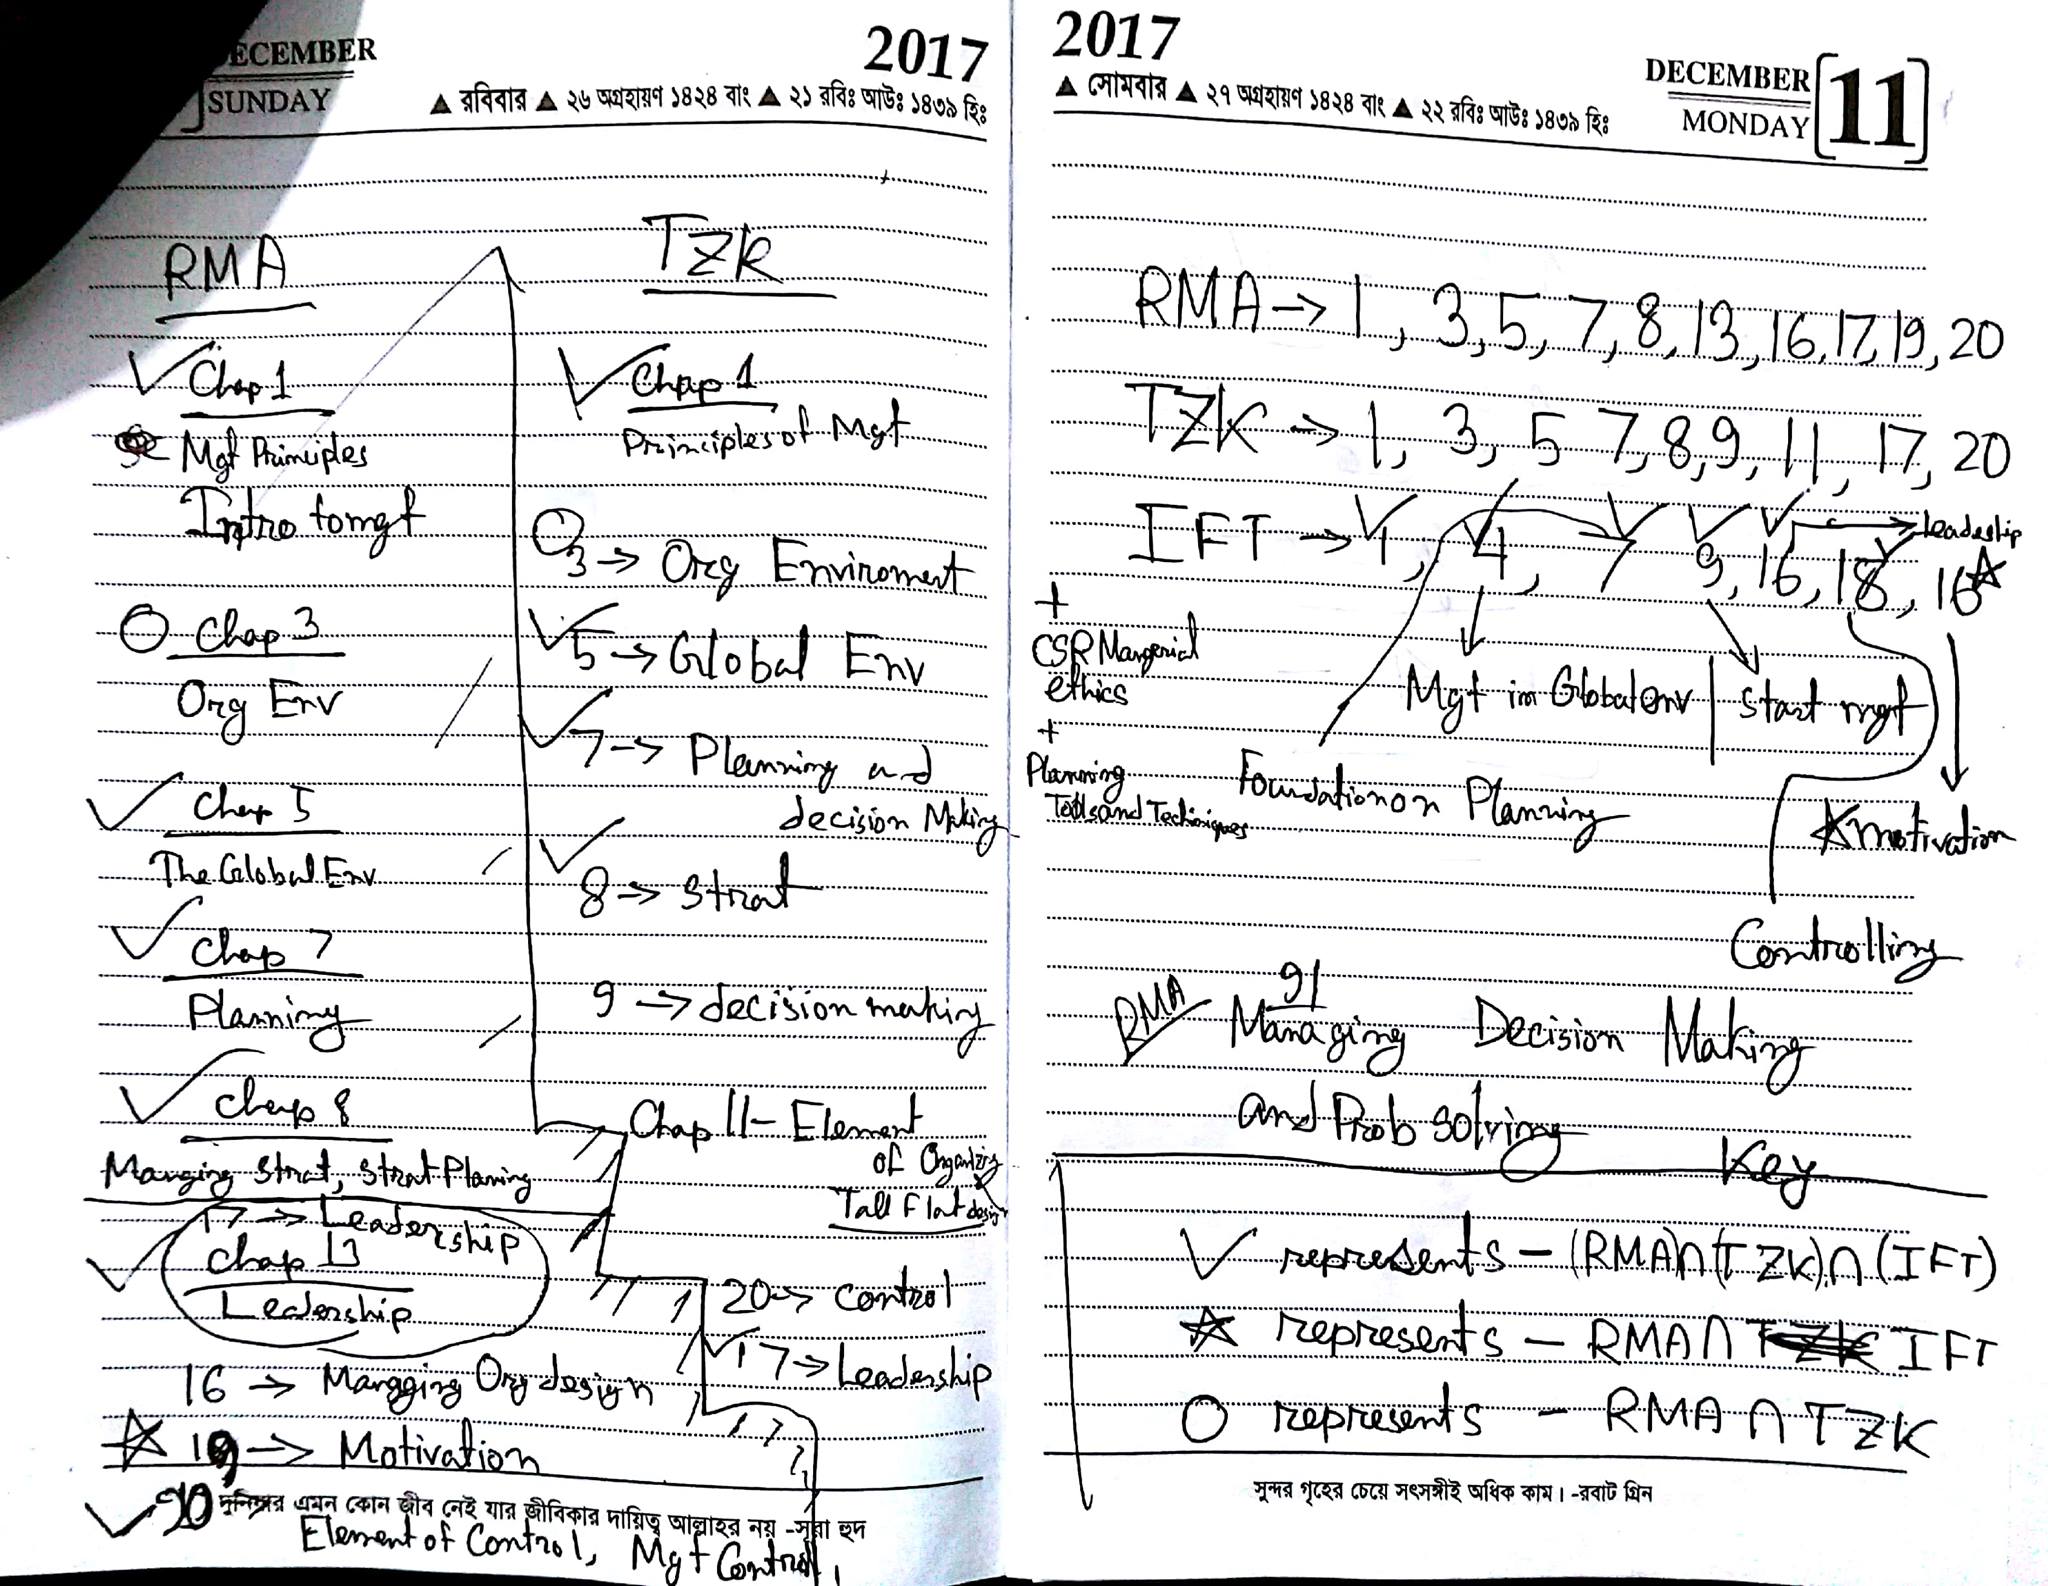 ECEMBER
SUNDAY
2017
▲ রবিবার ▲ ২৬ অগ্রহায়ণ ১৪২৪ বাং ▲ ২১ রবিঃ আউঃ ১৪৩৯ হিঃ
RMA
Chap 1
Mgt Principles
Intro to mgt
Chap 3
Org Env
Chap 5
The Global Env
Chap 7
Planning
Chap 8
Managing Strat, Strat Planing
17 → Leadership
Chap 13
Leadership
16 → Mangging Org design
19 → Motivation
20
Element of Control, Mgt Control,
TZK
Chap 1
Principles of Mgt
3 → Org Enviroment
5 → Global Env
7 → Planning and
decision Making
8 → Strat
9 → decision making
Chap 11 - Element
of Organizing
Tall Flat design
20 → Control
17 → Leadership
দুনিয়ার এমন কোন জীব নেই যার জীবিকার দায়িত্ব আল্লাহর নয় -সূরা হুদ
2017
▲ সোমবার ▲ ২৭ অগ্রহায়ণ ১৪২৪ বাং ▲ ২২ রবিঃ আউঃ ১৪৩৯ হিঃ
DECEMBER
MONDAY
11
RMA → 1, 3, 5, 7, 8, 13, 16, 17, 19, 20
TZK → 1, 3, 5 7, 8, 9, 11, 17, 20
IFT → 1, 4, 7 9, 16, 18, 16
Leadeship
+
CSR Mangerial
ethics
+
Planning
Tools and Techniques
Mgt in Global env
Start mgt
Foundation on Planning
motivation
Controlling
RMA
91
Managing Decision Making
and Prob solving
Key
✓ represents - (RMA)∩(TZK)∩(IFT)
☆ represents - RMA ∩ IFT
○ represents - RMA ∩ TZK
সুন্দর গৃহের চেয়ে সৎসঙ্গীই অধিক কাম্য। -রবার্ট গ্রিন